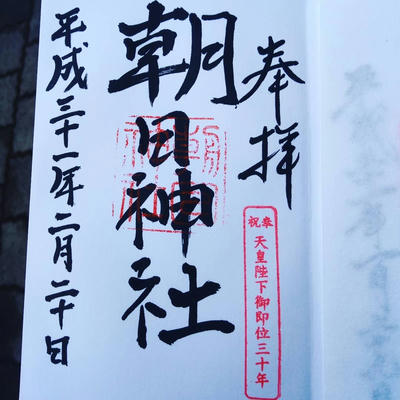 奉拝
奉祝 天皇陛下御即位三十年
朝日神社
平成三十一年二月二十日